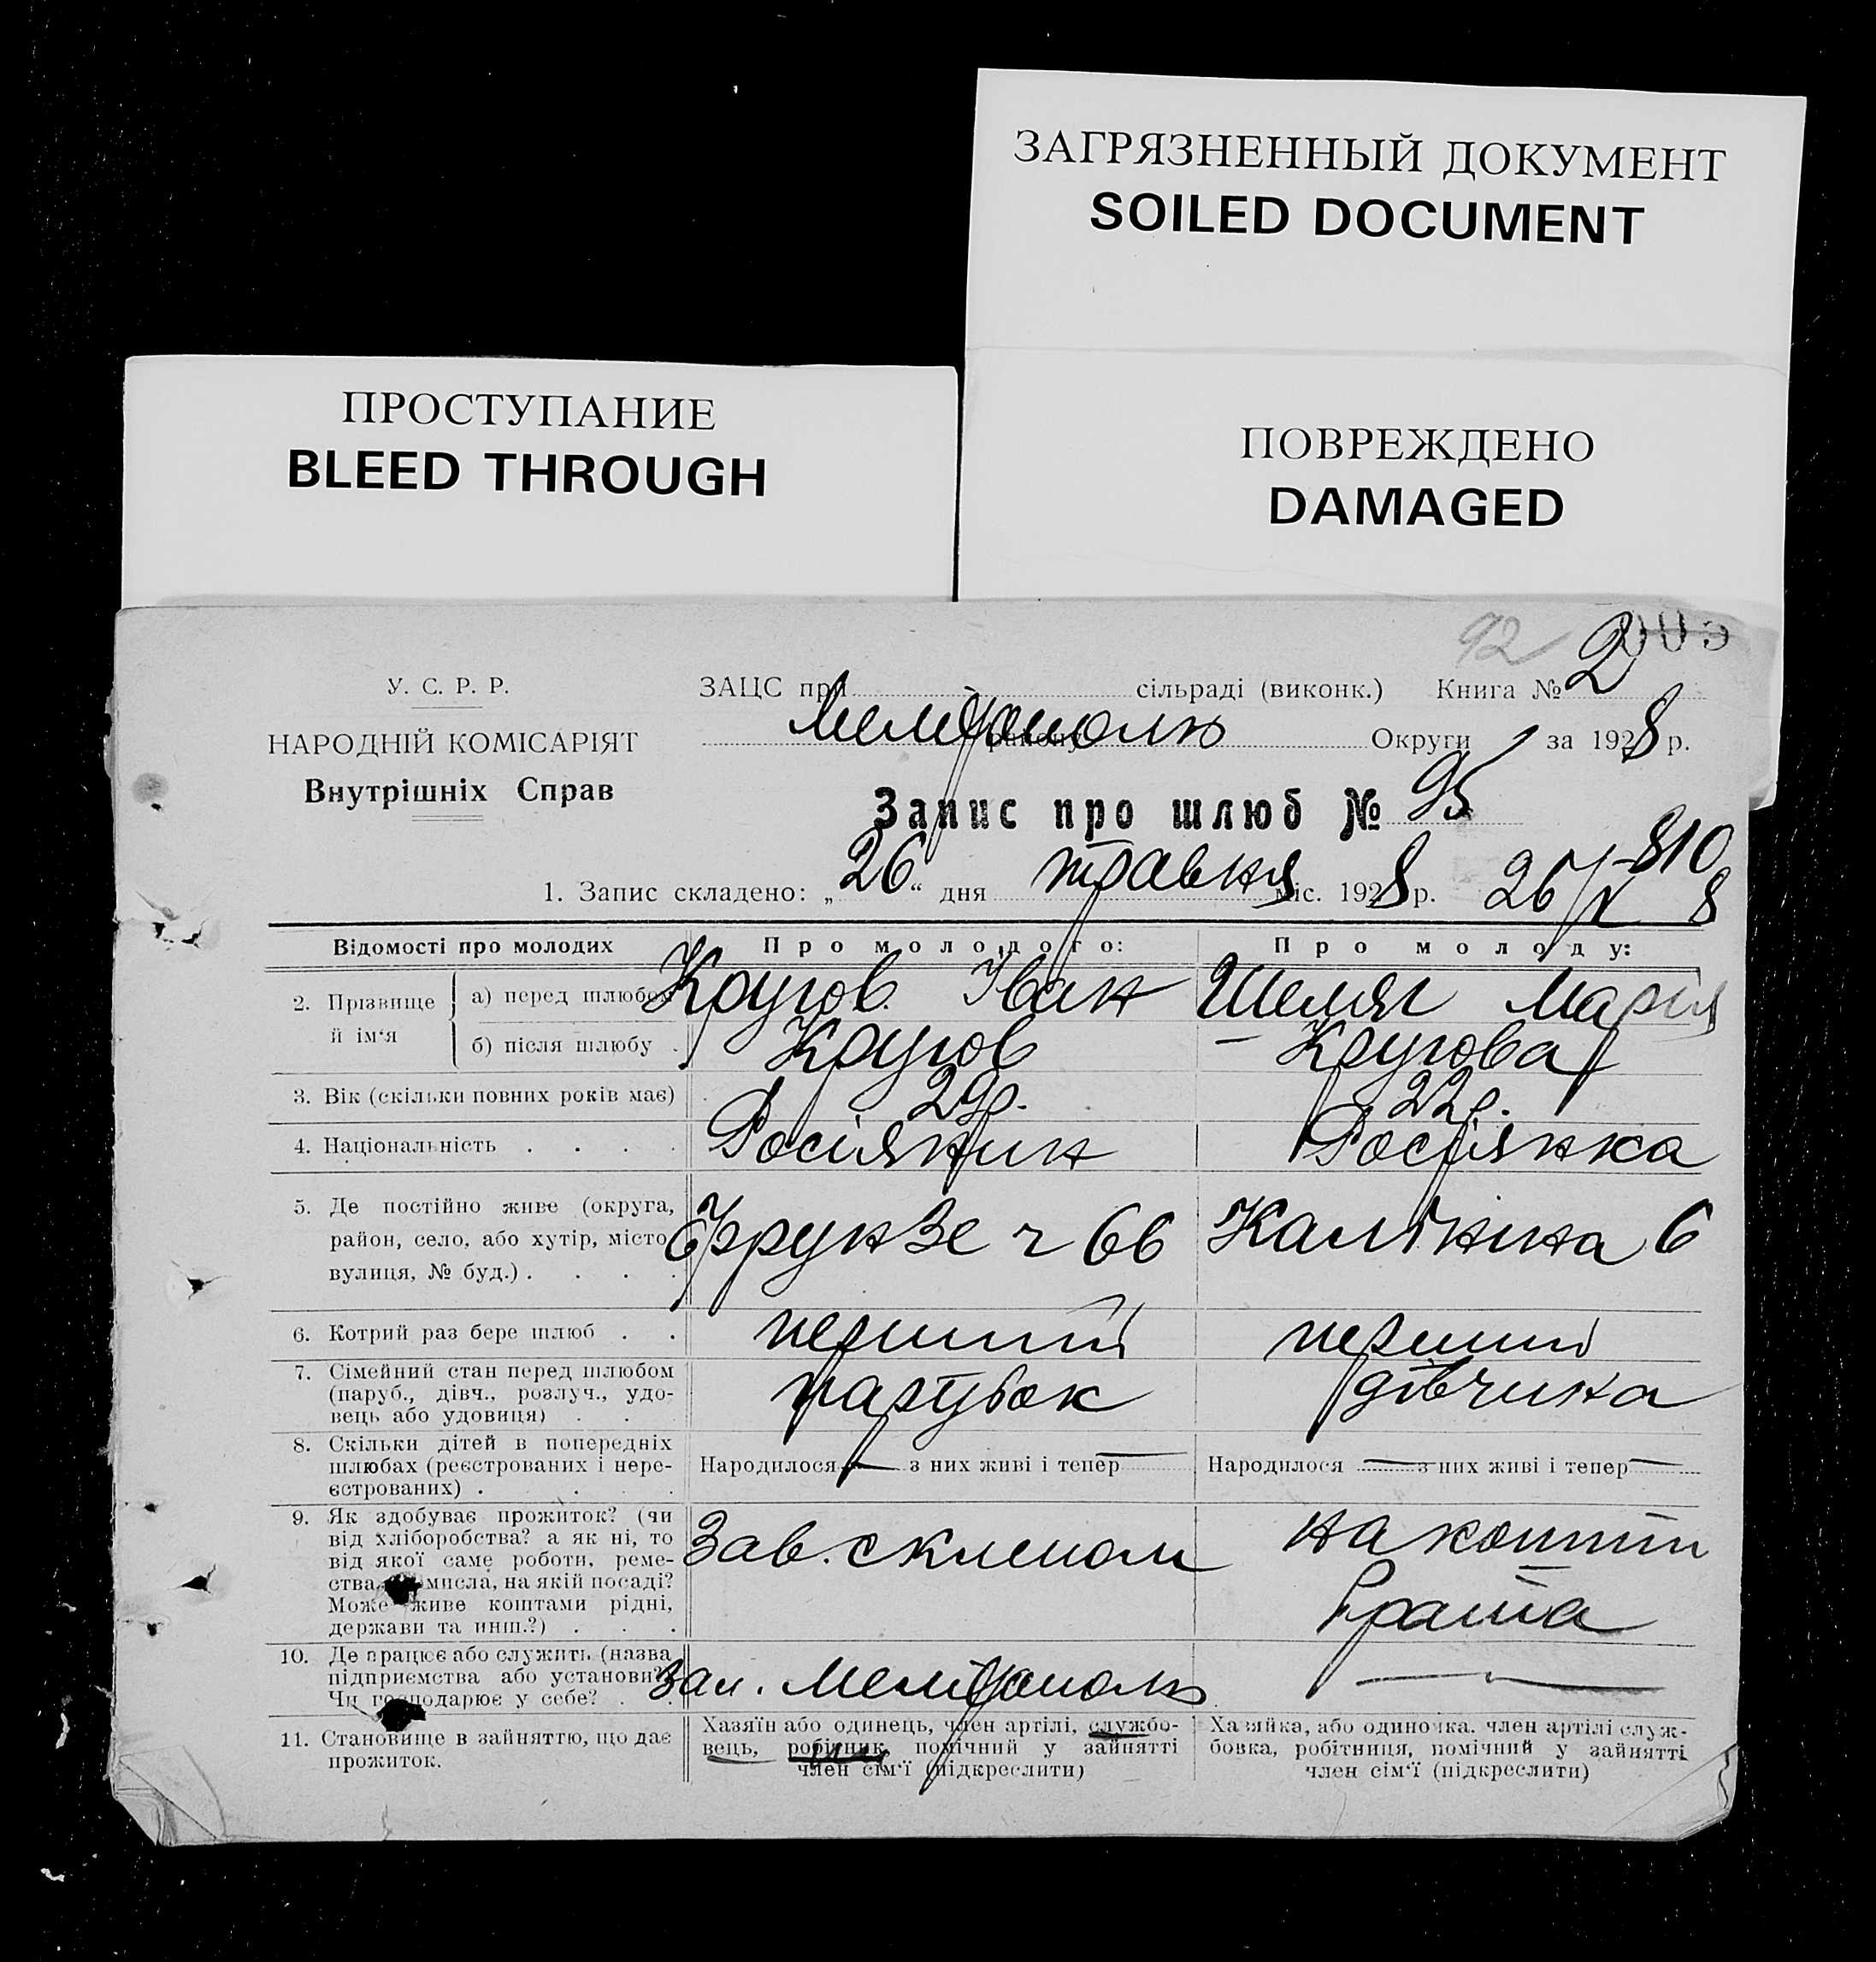 ЗАГРЯЗНЕННЫЙ ДОКУМЕНТ
SOILED DOCUMENT
ПРОСТУПАНИЕ
BLEED THROUGH
ПОВРЕЖДЕНО
DAMAGED
92
У. С. Р. Р.
НАРОДНІЙ КОМІСАРІЯТ
Внутрішніх Справ
ЗАЦС при сільраді (виконк.) Книга № 2
Мелітополь району Округи за 1928 р.
Запис про шлюб № 95
1. Запис складено: „26“ дня травня міс. 1928 р. 26/V 8
810
Відомості про молодих
Про молодого:
Про молоду:
2. Прізвище й ім‘я
а) перед шлюбом
Кругов Іван
Шеляг Марія
б) після шлюбу
Кругов
— Кругова
3. Вік (скільки повних років має)
29 р.
22 р.
4. Національність
Росіянин
Росіянка
5. Де постійно живе (округа,
район, село, або хутір, місто,
вулиця, № буд.)
Фрунзе ч 66
Калініна 6
6. Котрий раз бере шлюб
перший
перший
7. Сімейний стан перед шлюбом
(паруб., дівч., розлуч., удо-
вець або удовиця)
парубок
дівчина
8. Скільки дітей в попередніх
шлюбах (реєстрованих і нере-
єстрованих)
Народилося — з них живі і тепер —
Народилося — з них живі і тепер —
9. Як здобуває прожиток? (чи
від хліборобства? а як ні, то
від якої саме роботи, реме-
ства, мисла, на якій посаді?
Може живе коштами рідні,
держави та инш.?)
Зав. склепом
на кошти
брата
10. Де працює або служить (назва
підприємства або установи?)
Чи господарює у себе?
Мелітополь
—
11. Становище в зайняттю, що дає
прожиток.
Хазяїн або одинець, член артілі, службо-
вець, робітник, помічний у зайнятті
член сім‘ї (підкреслити)
Хазяйка, або одиночка. член артілі служ-
бовка, робітниця, помічний у зайнятті
член сім‘ї (підкреслити)